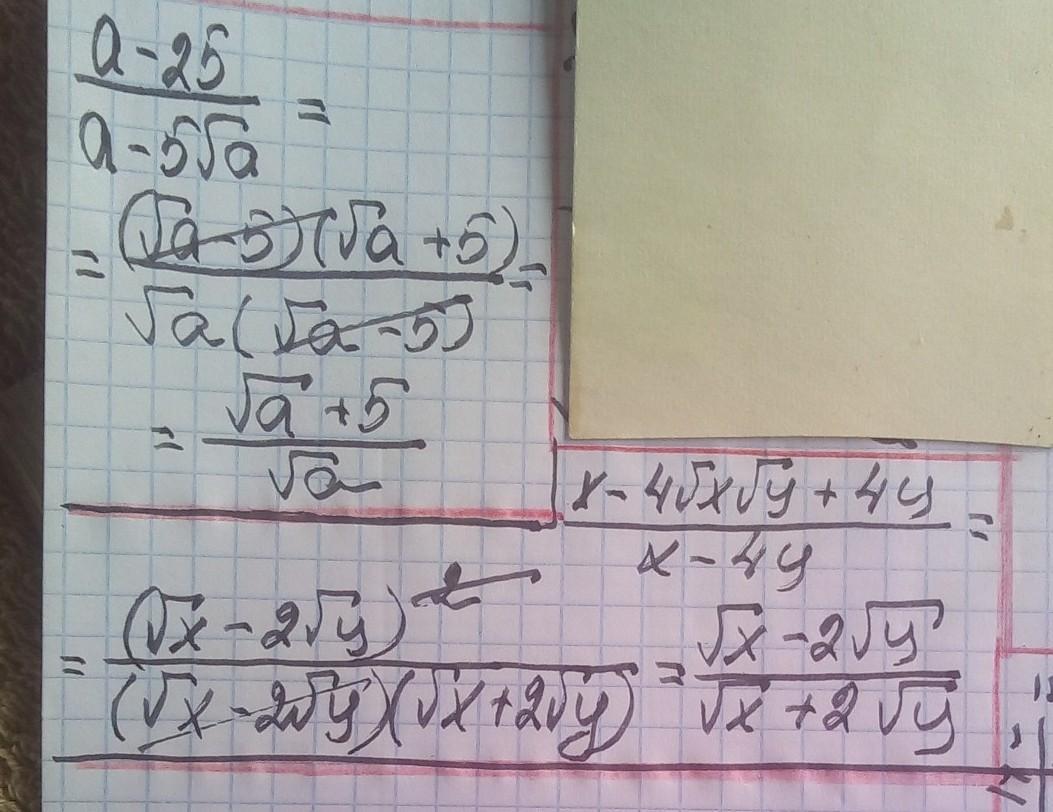 a-25
a-5√a =
= (√a-5)(√a+5) =
√a(√a-5)
= √a+5
√a
x-4√x√y+4y =
x-4y
= (√x-2√y)² = √x-2√y
(√x-2√y)(√x+2√y) √x+2√y